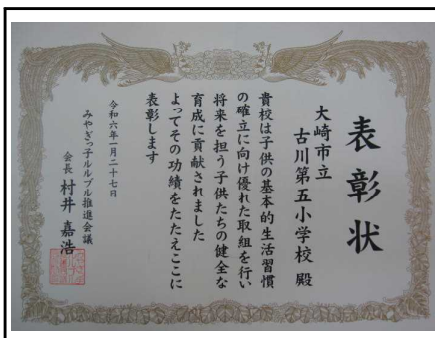 表彰状
大崎市立
古川第五小学校 殿
貴校は子供の基本的生活習慣
の確立に向け優れた取組を行い
将来を担う子供たちの健全な
育成に貢献されました
よってその功績をたたえここに
表彰します
令和六年一月二十七日
みやぎっ子ルルブル推進会議
会長 村井嘉浩